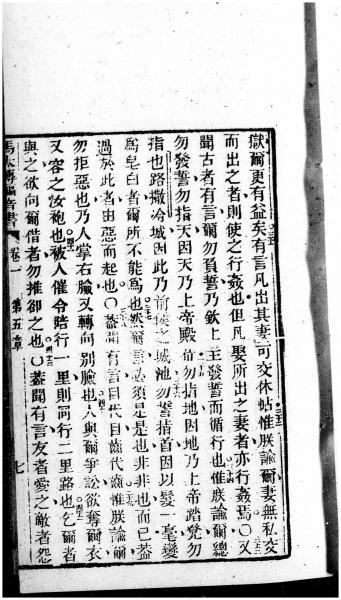 獄爾更有益矣有言凡出其妻可交休帖惟朕諭爾妻無私交
而出之者則使之行姦也但凡娶所出之妻者亦行姦焉○又
聞古者有言爾勿負誓乃欽上主發誓而循行也惟朕諭爾總
勿發誓勿指天因天乃上帝殿勿指地因地乃上帝踏凳勿
指也路撒冷城因此乃前侯之城池勿誓指首因以髮一毫變
為皂白者爾所不能為也然爾言必須是是也非非也而已蓋
過於此者由惡而起也○蓋聞有言目代目齒代齒惟朕諭爾
勿拒惡也乃人掌右臉又轉向別臉也人與爾爭訟欲奪爾衣
又容之汝袍也被人催令陪行一里則同行二里路也乞爾者
與之欲向爾借者勿推卻之也○蓋聞有言友者愛之敵者怨
馬太傳福音書 卷一 第五章 七